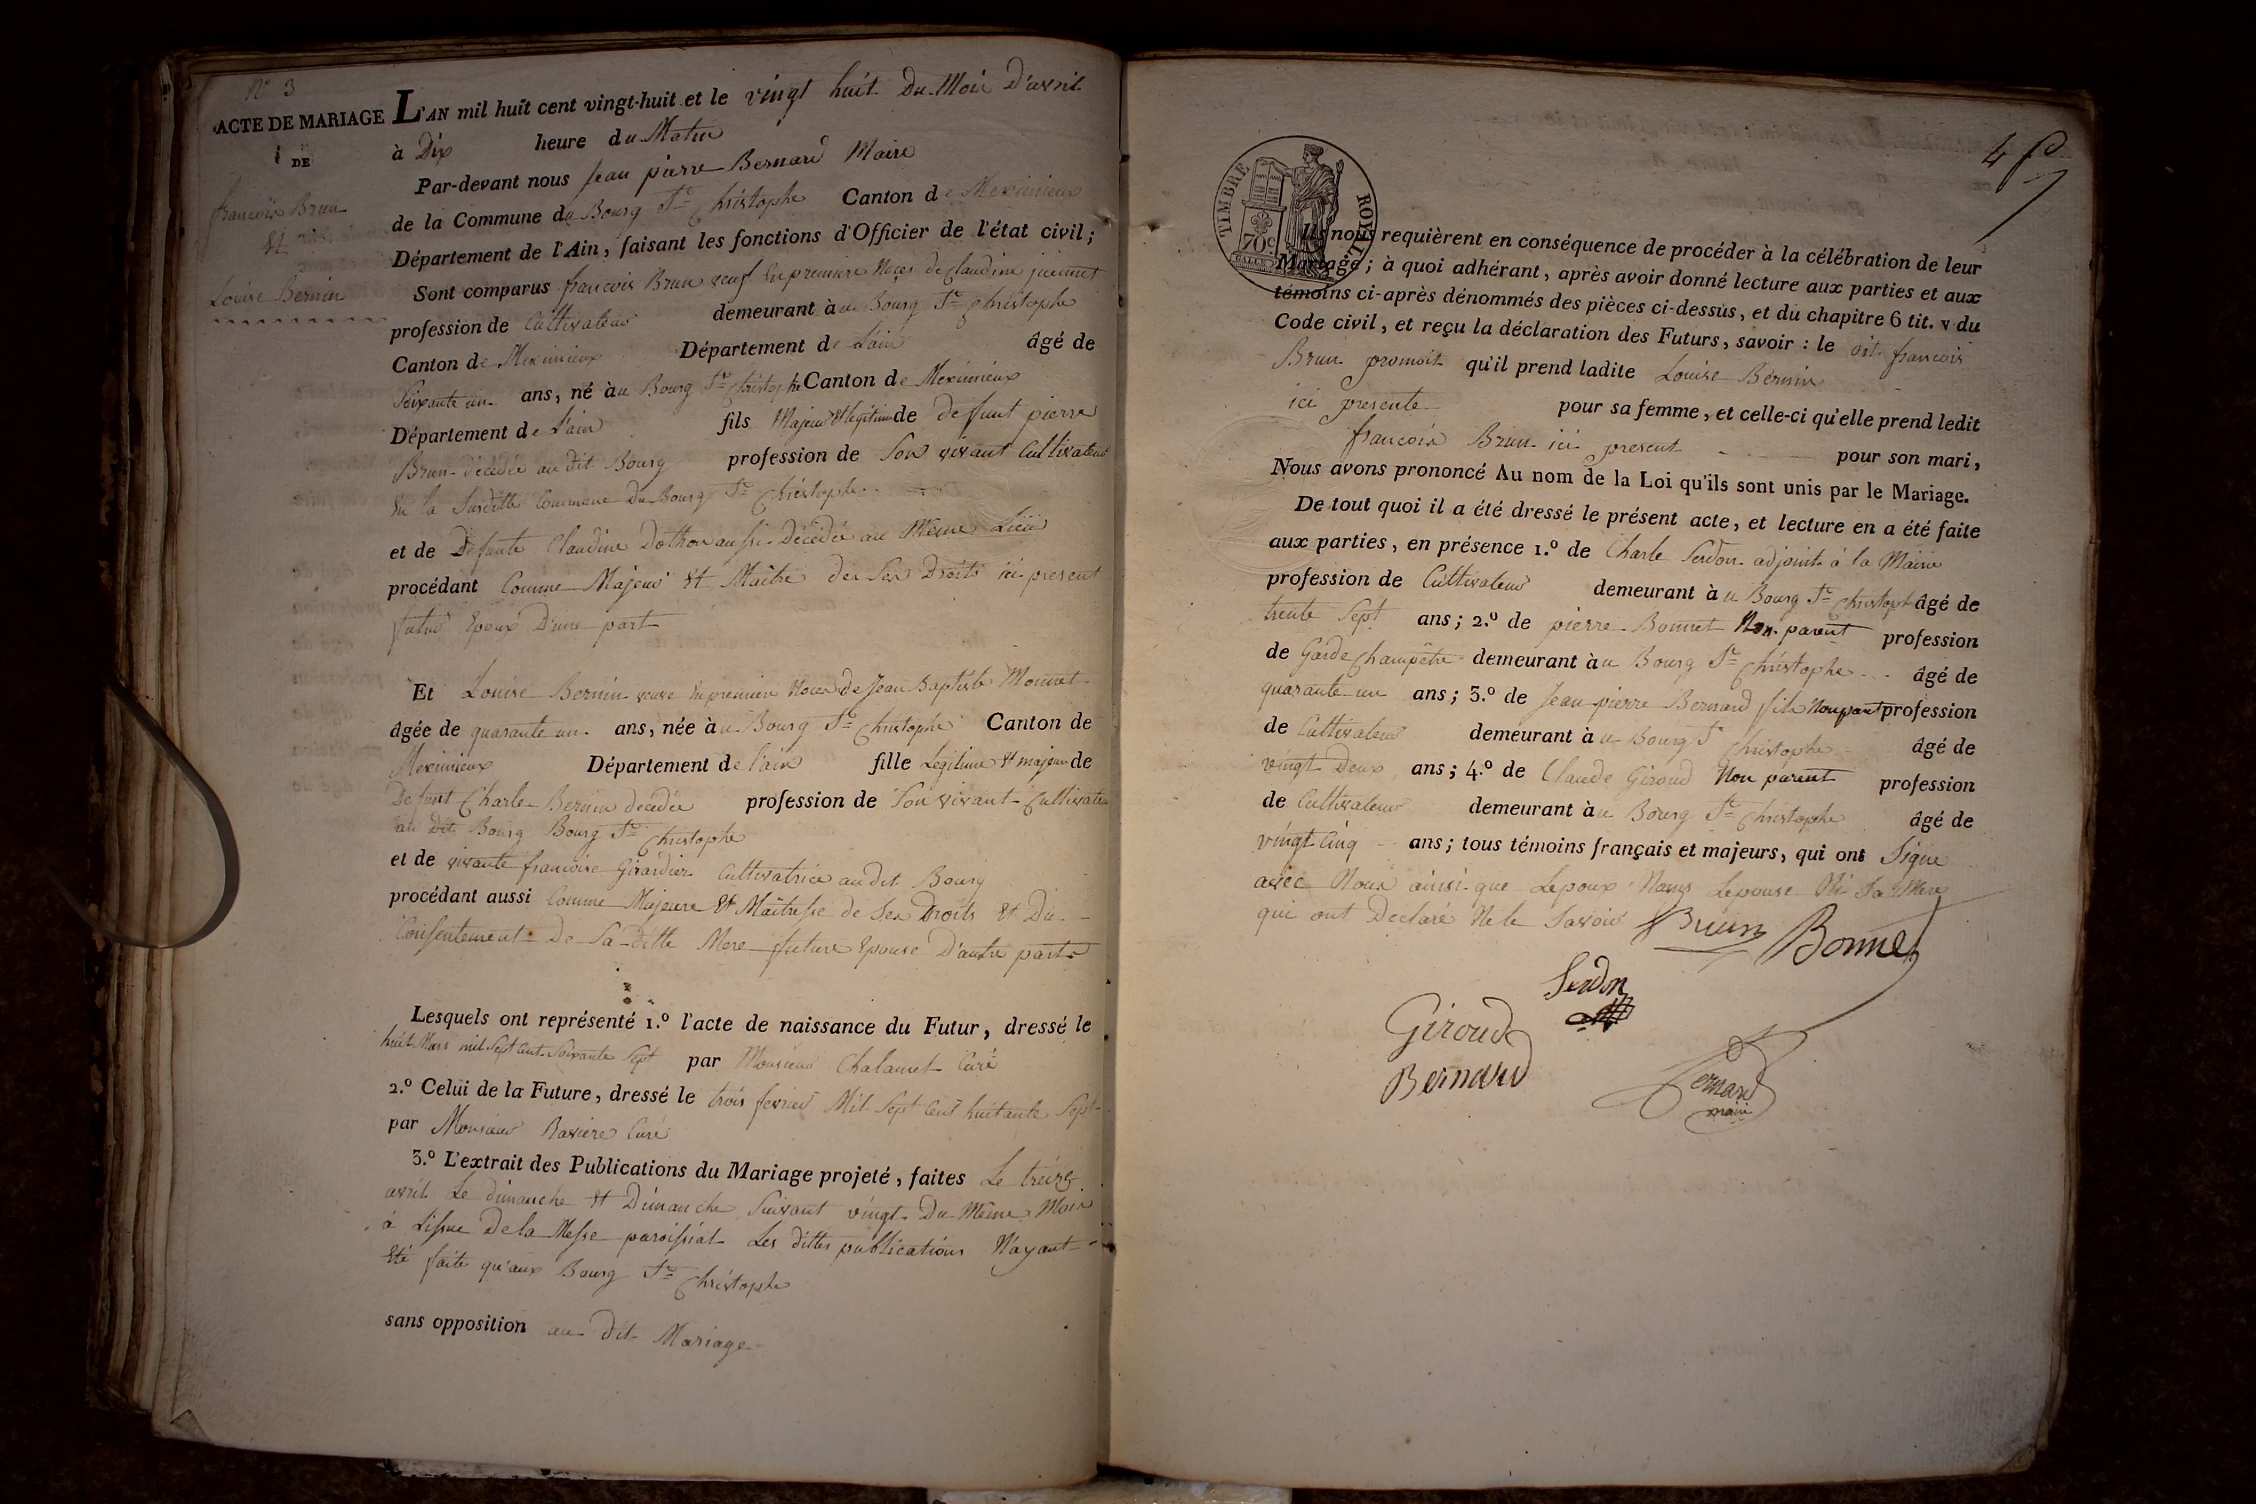 N° 3
ACTE DE MARIAGE
DE
francois Brun
et
Louise Bernin
L'AN mil huit cent vingt-huit et le vingt huit Du Mois D'avril
à Dix heure du Matin
Par-devant nous Jean pierre Bernard Maire
de la Commune du Bourg St Christophe Canton de Meximieux
Département de l'Ain, faisant les fonctions d'Officier de l'état civil;
Sont comparus francois Brun veuf En premiere Noces de Claudine
profession de Cultivateur demeurant àu Bourg St Christophe
Canton de Meximieux Département de L'ain âgé de
Soixante un ans, né àu Bourg St Christophe Canton de Meximieux
Département de L'ain fils Majeur et légitime de Defunt pierre
Brun décédée au dit Bourg profession de Son vivant Cultivateur
En la Susditte Commune Du Bourg St Christophe
et de Defunte Claudine Dothon aussi Décédée au Meme Lieu
procédant Comme Majeur et Maître de Ses Droits ici present
futur Epoux D'une part
Et Louise Bernin veuve En premier Noces de Jean Baptiste Monnet
âgée de quarante un ans, née àu Bourg St Christophe Canton de
Meximieux Département de l'ain fille Legitime et majeur de
Defunt Charle Bernin décédée profession de Son vivant Cultivateur
au dit Bourg Bourg St Christophe
et de vivante francoise Girardier Cultivatrice au dit Bourg
procédant aussi Comme Majeure et Maîtresse de Ses Droits et Du
Consentement De Sa ditte Mere future Epouse D'autre part
Lesquels ont représenté 1.º l'acte de naissance du Futur, dressé le
huit Mars mil Sept Cent Soixante Sept par Monsieur Chalamet Curé
2.º Celui de la Future, dressé le trois fevrier Mil Sept Cent huitante Sept
par Monsieur Raviere Curé
3.º L'extrait des Publications du Mariage projeté, faites Le treize
avril Le dimanche et Dimanche Suivant vingt Du Même Mois
à Lissue De la Messe paroissial Les dittes publications N'ayant
Eté faite qu'aux Bourg St Christophe
sans opposition au dit Mariage
4
TIMBRE ROYAL
70 c
Ils nous requièrent en conséquence de procéder à la célébration de leur
Mariage; à quoi adhérant, après avoir donné lecture aux parties et aux
témoins ci-après dénommés des pièces ci-dessus, et du chapitre 6 tit. v du
Code civil, et reçu la déclaration des Futurs, savoir : le dit francois
Brun promoit qu'il prend ladite Louise Bernin
ici presente pour sa femme, et celle-ci qu'elle prend ledit
francois Brun ici present pour son mari,
Nous avons prononcé Au nom de la Loi qu'ils sont unis par le Mariage.
De tout quoi il a été dressé le présent acte, et lecture en a été faite
aux parties, en présence 1.º de Charle Serdon adjoint à la Mairie
profession de Cultivateur demeurant àu Bourg St Christoph âgé de
trente Sept ans; 2.º de pierre Bonnet Non parent profession
de Garde Champêtre demeurant àu Bourg St Christophe âgé de
quarante un ans; 3.º de Jean pierre Bernard fils Non parent profession
de Cultivateur demeurant àu Bourg St Christophe âgé de
vingt Deux ans; 4.º de Claude Giroud Non parent profession
de Cultivateur demeurant àu Bourg St Christophe âgé de
vingt Cinq ans; tous témoins français et majeurs, qui ont Signe
avec Nous ainsi que Lepoux Lepouse Ni Sa Mere
qui ont Declaré Ne le Savoir Brun Bonnet
Serdon
Giroud
Bernard Bernard
maire